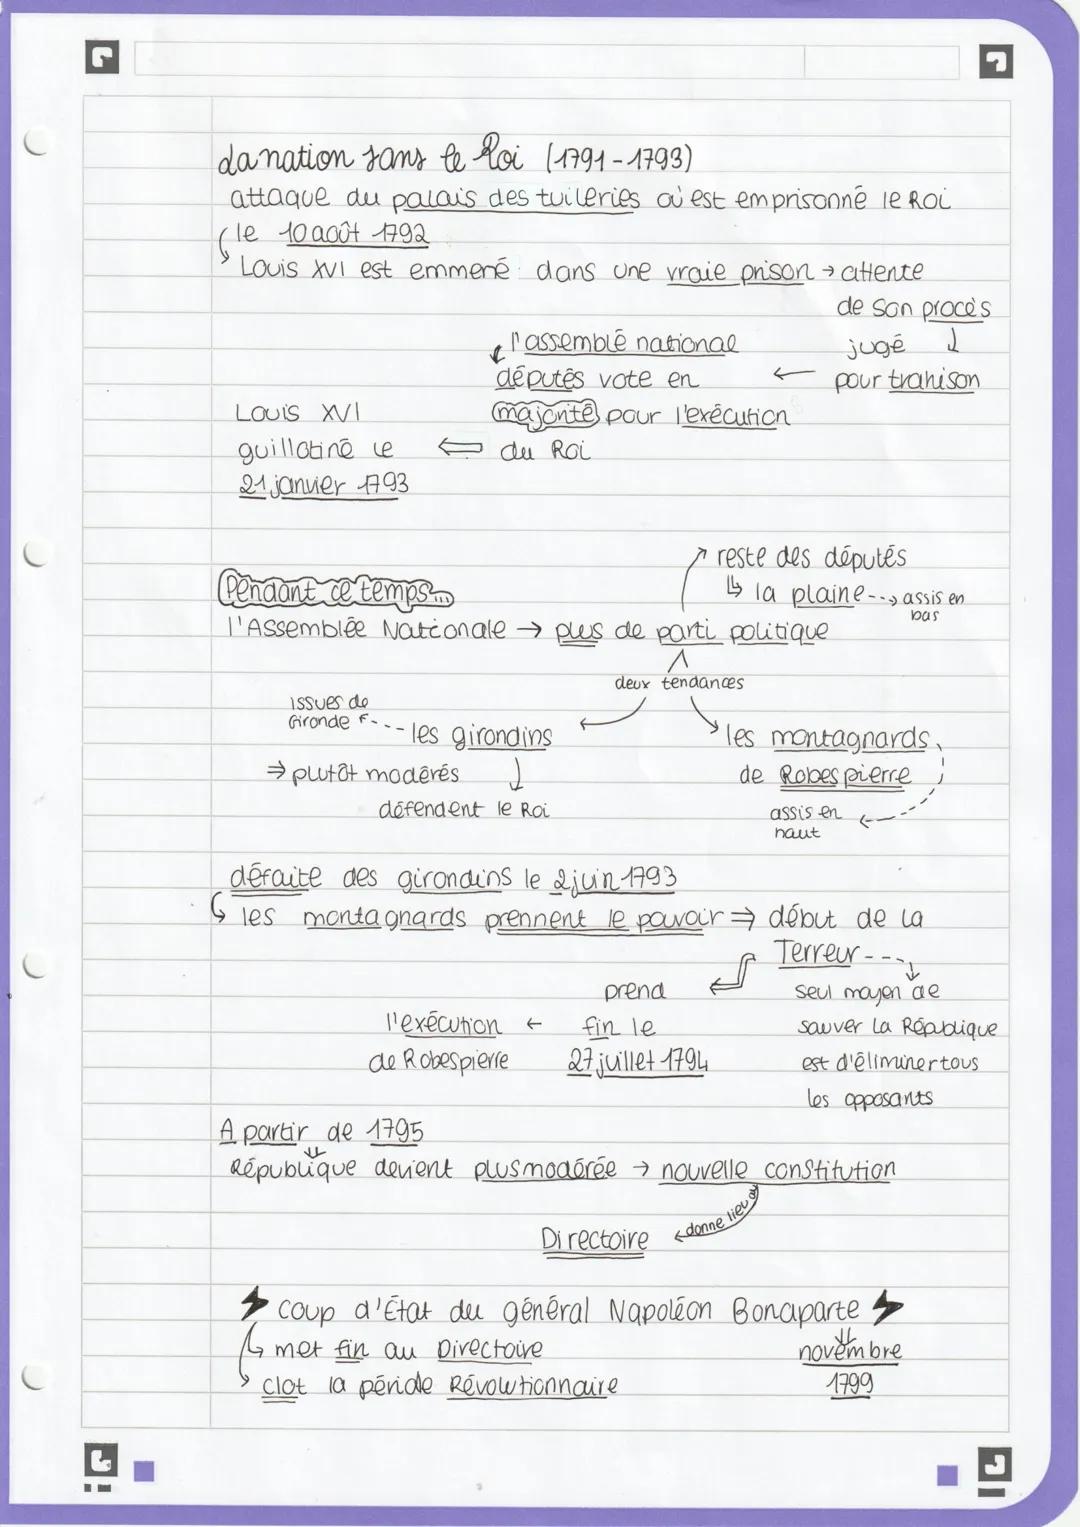 La nation sans le Roi (1791-1793)
attaque du palais des tuileries où est emprisonné le Roi
le 10 août 1792
Louis XVI est emmené dans une vraie prison → attente
de son procès
jugé ↓
pour trahison
←
l'assemblé national
députés vote en
majorité pour l'exécution
du Roi
⇐
Louis XVI
guillotiné le
21 janvier 1793
Pendant ce temps...
reste des députés
↳ la plaine --→ assis en
bas
l'Assemblée Nationale → plus de parti politique
deux tendances
issues de
Gironde ←--- les girondins
⇒ plutôt modérés ↓
défendent le Roi
les montagnards
de Robespierre
assis en
haut
défaite des girondins le 2 juin 1793
↳ les montagnards prennent le pouvoir ⇒ début de la
Terreur ---
seul moyen de
sauver la République
est d'éliminer tous
les opposants
prend
fin le
27 juillet 1794
←
l'exécution
de Robespierre
A partir de 1795
⇓
République devient plus modérée → nouvelle constitution
donne lieu au
Directoire
⚡ coup d'État du général Napoléon Bonaparte ⚡
↳ met fin au Directoire
⇓
novembre
1799
↳ clot la période Révolutionnaire